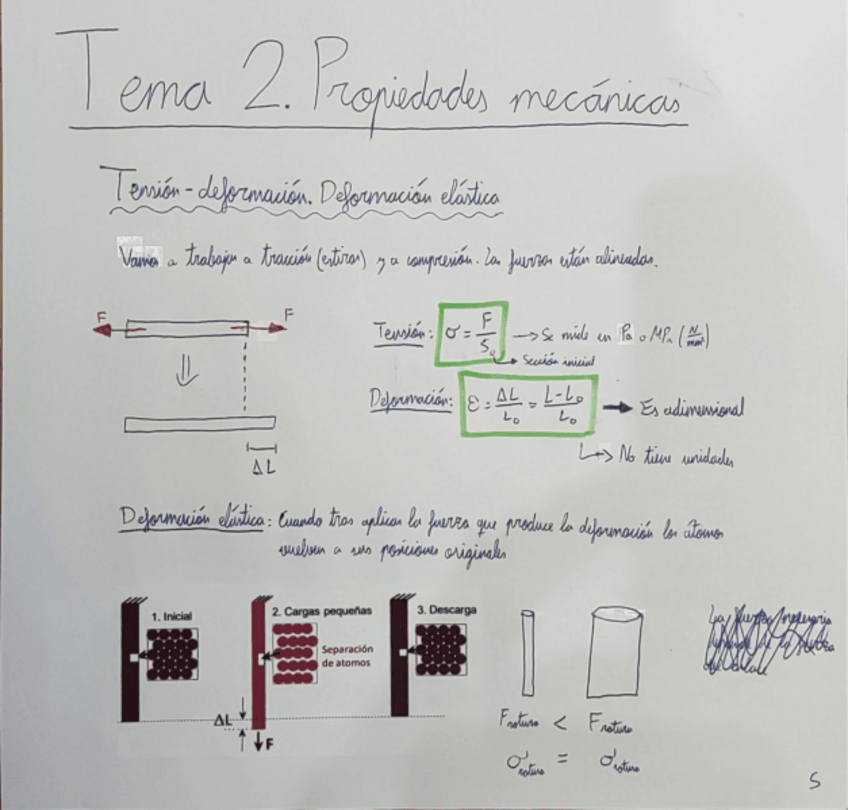 Tema 2. Propiedades mecánicas
Tensión - deformación. Deformación elástica
Vamos a trabajar a tracción (estirar) y a compresión. Las fuerzas están alineadas.
F F
Tensión: σ = F/S₀ → Se mide en Pa o MPa (N/mm²)
→ Sección inicial
Deformación: ε = ΔL/L₀ = L-L₀/L₀ → Es adimensional
↳ No tiene unidades
ΔL
Deformación elástica: Cuando tras aplicar la fuerza que produce la deformación los átomos
vuelven a sus posiciones originales
1. Inicial
2. Cargas pequeñas
3. Descarga
Separación
de atomos
ΔL
F
F rotura < F rotura
σ rotura = σ rotura
5